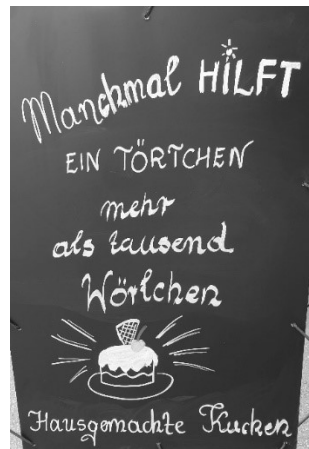 Manchmal HILFT
EIN TÖRTCHEN
mehr
als tausend
Wörtchen
Hausgemachte Kuchen